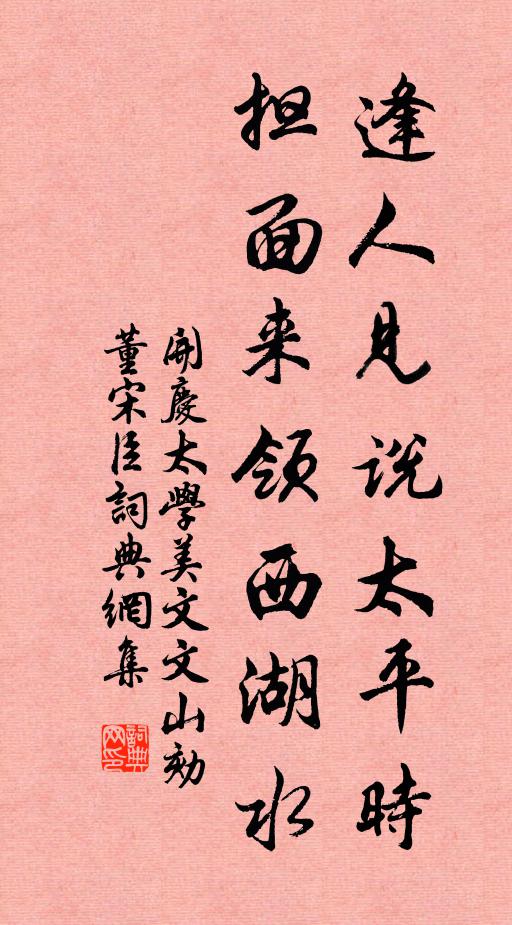 逢人見說太平時
担面来領西湖水
開慶太學美文文山劾
董宋臣詞典網集
詞典
网印